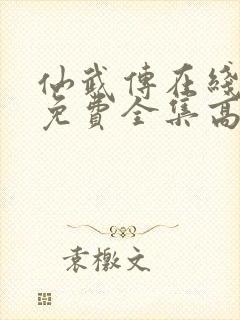 仙武傳在綫
免費全集高
袁檄文